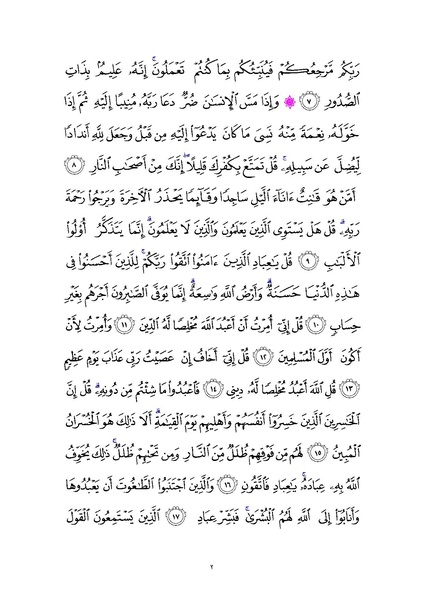 رَبِّكُم مَّرْجِعُكُمْ فَيُنَبِّئُكُم بِمَا كُنتُمْ تَعْمَلُونَ ۚ إِنَّهُۥ عَلِيمٌۢ بِذَاتِ
ٱلصُّدُورِ ﴿٧﴾ ۞ وَإِذَا مَسَّ ٱلْإِنسَٰنَ ضُرٌّ دَعَا رَبَّهُۥ مُنِيبًا إِلَيْهِ ثُمَّ إِذَا
خَوَّلَهُۥ نِعْمَةً مِّنْهُ نَسِىَ مَا كَانَ يَدْعُوٓا۟ إِلَيْهِ مِن قَبْلُ وَجَعَلَ لِلَّهِ أَندَادًا
لِّيُضِلَّ عَن سَبِيلِهِۦ ۚ قُلْ تَمَتَّعْ بِكُفْرِكَ قَلِيلًا ۖ إِنَّكَ مِنْ أَصْحَٰبِ ٱلنَّارِ ﴿٨﴾
أَمَّنْ هُوَ قَٰنِتٌ ءَانَآءَ ٱلَّيْلِ سَاجِدًا وَقَآئِمًا يَحْذَرُ ٱلْءَاخِرَةَ وَيَرْجُوا۟ رَحْمَةَ
رَبِّهِۦ ۗ قُلْ هَلْ يَسْتَوِى ٱلَّذِينَ يَعْلَمُونَ وَٱلَّذِينَ لَا يَعْلَمُونَ ۗ إِنَّمَا يَتَذَكَّرُ أُو۟لُوا۟
ٱلْأَلْبَٰبِ ﴿٩﴾ قُلْ يَٰعِبَادِ ٱلَّذِينَ ءَامَنُوا۟ ٱتَّقُوا۟ رَبَّكُمْ ۚ لِلَّذِينَ أَحْسَنُوا۟ فِى
هَٰذِهِ ٱلدُّنْيَا حَسَنَةٌ ۗ وَأَرْضُ ٱللَّهِ وَٰسِعَةٌ ۗ إِنَّمَا يُوَفَّى ٱلصَّٰبِرُونَ أَجْرَهُم بِغَيْرِ
حِسَابٍ ﴿١٠﴾ قُلْ إِنِّىٓ أُمِرْتُ أَنْ أَعْبُدَ ٱللَّهَ مُخْلِصًا لَّهُ ٱلدِّينَ ﴿١١﴾ وَأُمِرْتُ لِأَنْ
أَكُونَ أَوَّلَ ٱلْمُسْلِمِينَ ﴿١٢﴾ قُلْ إِنِّىٓ أَخَافُ إِنْ عَصَيْتُ رَبِّى عَذَابَ يَوْمٍ عَظِيمٍ
﴿١٣﴾ قُلِ ٱللَّهَ أَعْبُدُ مُخْلِصًا لَّهُۥ دِينِى ﴿١٤﴾ فَٱعْبُدُوا۟ مَا شِئْتُم مِّن دُونِهِۦ ۗ قُلْ إِنَّ
ٱلْخَٰسِرِينَ ٱلَّذِينَ خَسِرُوٓا۟ أَنفُسَهُمْ وَأَهْلِيهِمْ يَوْمَ ٱلْقِيَٰمَةِ ۗ أَلَا ذَٰلِكَ هُوَ ٱلْخُسْرَانُ
ٱلْمُبِينُ ﴿١٥﴾ لَهُم مِّن فَوْقِهِمْ ظُلَلٌ مِّنَ ٱلنَّارِ وَمِن تَحْتِهِمْ ظُلَلٌ ۚ ذَٰلِكَ يُخَوِّفُ
ٱللَّهُ بِهِۦ عِبَادَهُۥ ۚ يَٰعِبَادِ فَٱتَّقُونِ ﴿١٦﴾ وَٱلَّذِينَ ٱجْتَنَبُوا۟ ٱلطَّٰغُوتَ أَن يَعْبُدُوهَا
وَأَنَابُوٓا۟ إِلَى ٱللَّهِ لَهُمُ ٱلْبُشْرَىٰ ۚ فَبَشِّرْ عِبَادِ ﴿١٧﴾ ٱلَّذِينَ يَسْتَمِعُونَ ٱلْقَوْلَ
٢